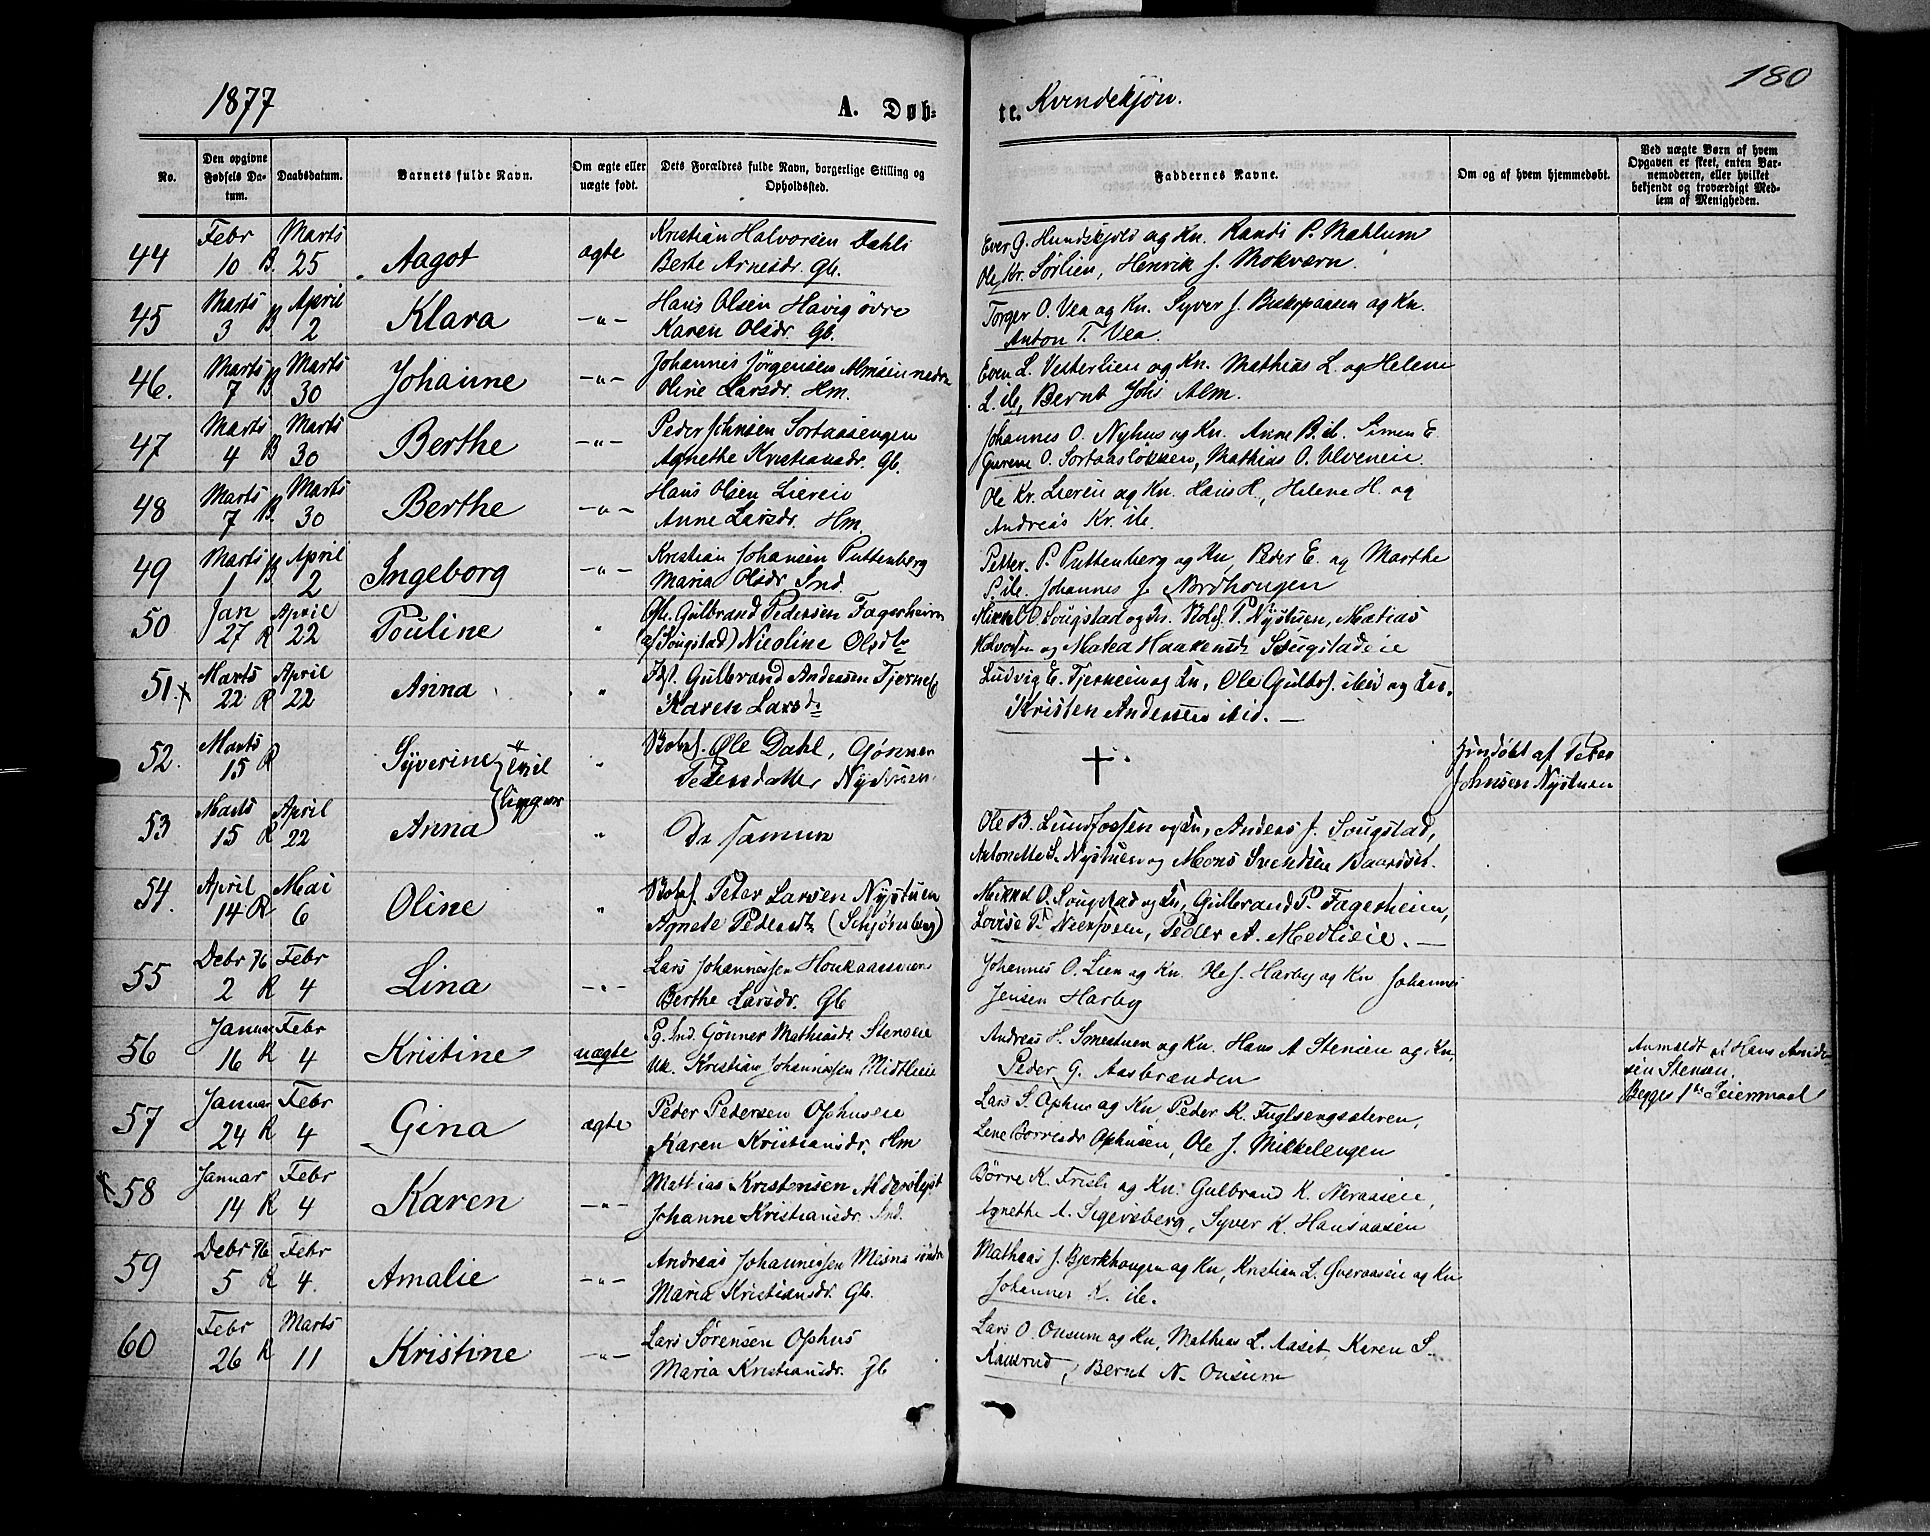 1877 A. Døb-
te. Kvindekjøn. 180
No. Den opgivne Fødsels Datum. Daabsdatum. Barnets fulde Navn. Om ægte eller uægte født. Dets Forældres fulde Navn, borgerlige Stilling og Opholdssted. Faddernes Navne. Om og af hvem hjemmedøbt. Ved uægte Børn af hvem Opgaven er skeet, enten Barnemoderen, eller hvilket bekjendt og troværdigt Medlem af Menigheden.
Febr Marts Kristian Halvorsen Dahli Ever G. Hundskjold og Kn. Randi P. Mæhlum
44 10 B. 25 Aagot ægte Berte Arnesdr. Gb. Ole Kr. Sørlien, Henrik J. Mokværn.
Marts April Hans Olsen Havig øvre Torger O. Vea og Kn. Syver J. Biskopaasen og Kn.
45 3 B 2 Klara -"- Karen Olsdr. Gb. Anton T. Vea.
Marts Marts Johannes Jørgensen Almseie nedre Even L. Vesterlien og Kn. Mathias L. og Helene
46. 7 B 30 Johanne -"- Oline Larsdr. Hm. L. ib, Bernt Johs Alm.
Marts Marts Peder Johnsen Sortaasengen Johannes O. Nyhus og Kn. Anne B. ib. Simen E.
47 4 B 30 Berthe -"- Agnethe Kristiansdr. Gb. Gurene O. Sortaasløkken, Mathias O. Ulveneie.
Marts Marts Hans Olsen Liereie Ole Kr. Liereie og Kn. Hans H., Helene H. og
48 7 B. 30 Berthe -"- Anne Larsdr. Hm. Andreas Kr. ib.
Marts April Kristian Johansen Puttenberg Petter P. Puttenberg og Kn, Peder E. og Marthe
49 1 B 2 Ingeborg -"- Maria Olsdr. Ind. P. ib. Johannes J. Nordhougen
Jan April Gbr. Gulbrand Pedersen Fagerheim Mikkel O. Sougstad og Kn. P. Nystuen, Matias
50 27 R 22 Pouline " (Sougstad) Nicoline Olsdtr Halvorsen og Matea Haakensdtr Sougstadeie
Marts April Gulbrand Andersen Ludvig E. Fjerheim og Kn, Ole Gulbr. ibid og Kn.
51 x 22 R 22 Anna " Karen Larsdr Kristen Andersen ibid.
Marts Ole Dahl, Gønner Hjemdøbt af Peter
52. 15 R Syverine " Pedersdatter Nystuen + Johnsen Nystuen
Tvillinger
Marts April Ole B. Lundfossen og Kn, Anders J. Sougstad,
53 15 R 22 Anna " De samme Antonette S. Nystuen og Mons Svendsen Baardset.
April Mai Peter Larsen Nystuen Mikkel O. Sougstad og Kn, Gulbrand P. Fagerheim,
54. 14 R 6 Oline " Agnete Pedersdtr (Schjønsberg) Lovise P. Peder A. Medlieie.
Debr 76 Febr Lars Johannessen Johannes O. Lien og Kn. Ole J. Harby og Kn Johannes
55 2 R 4 Lina -"- Berthe Larsdr. Gb Jensen Harby
Januar Febr Pg. Ind. Gønner Mathisdr. Stenseie Andreas H. Smestuen og Kn. Hans A Stensen og Kn, Anmeldt af Hans Andersen Stensen.
56 16 R 4 Kristine uægte Uk. Kristian Johannessen Midtlieie Peder G. Aasbrænden Begges 1ste Leiermaal
Januar Febr Peder Pedersen Ophuseie Lars S. Ophus og Kn, Peder K. Fuglsengsæteren,
57 24 R 4 Gina ægte Karen Kristiansdr. Hm Lene Børresdr Ophusen, Ole J. Mikkelengen
Januar Febr Mathias Kristensen Alderslyst Børre K. Frisli og Kn. Gulbrand K. Neraaseie,
x 58 14 R 4 Karen -"- Johanne Kristiansdr. Ind. Agnethe A. Sigersberg, Syver K. Hansaasen
Debr 76 Febr Andreas Johannessen Mesna søndre Mathias J. Bjerkhougen og Kn, Kristian L. Øveraaseie og Kn
59 5 R 4. Amalie -"- Maria Kristiansdr. Gb. Johannes K. ib.
Febr Marts Lars Sørensen Ophus Lars O. Onsum og Kn, Mathias L. Aaset, Karen S.
60 26 R 11 Kristine -"- Maria Kristiansdr. Gb Bernt N. Onsum